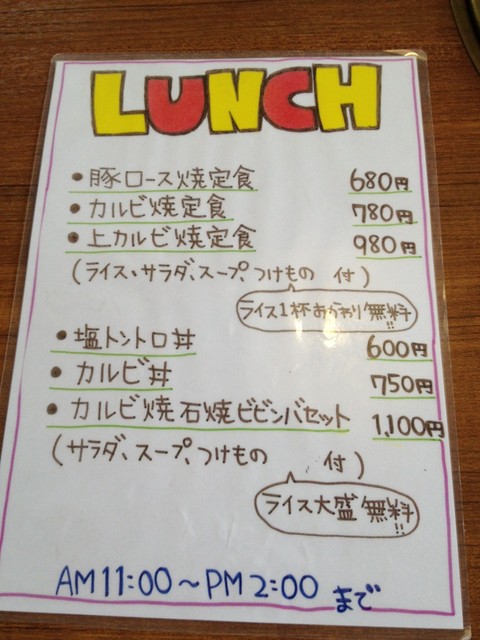 LUNCH
• 豚ロース焼定食 680円
• カルビ焼定食 780円
• 上カルビ焼定食 980円
(ライス、サラダ、スープ、つけもの 付)
ライス1杯おかわり無料!!
• 塩トントロ丼 600円
• カルビ丼 750円
• カルビ焼石焼ビビンバセット 1,100円
(サラダ、スープ、つけもの 付)
ライス大盛無料!!
AM11:00〜PM2:00 まで